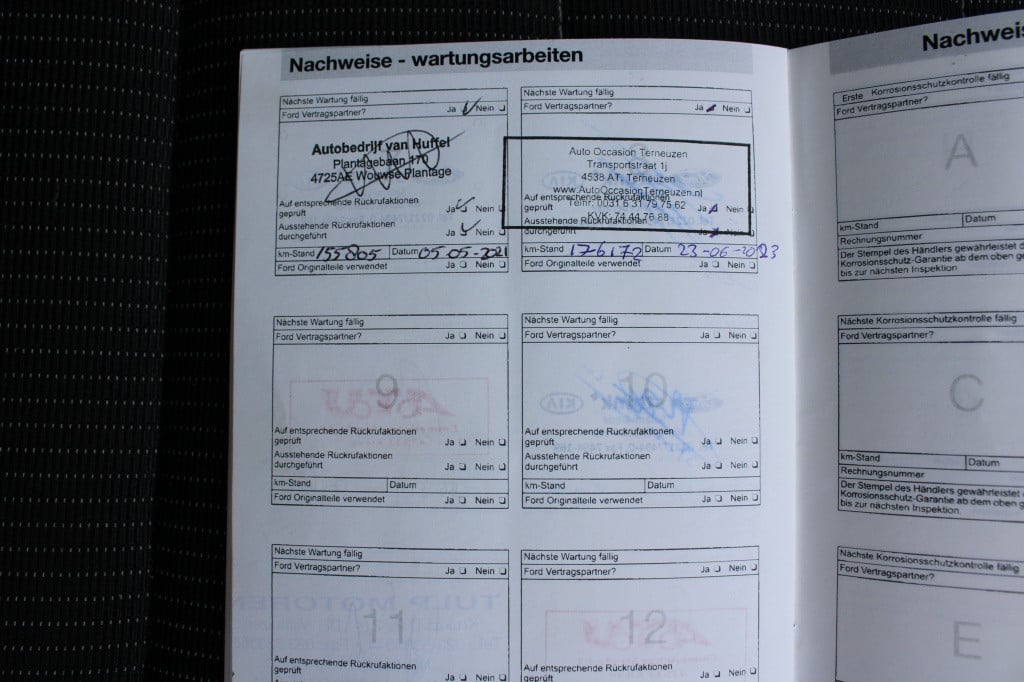 Nachweise - wartungsarbeiten
Nächste Wartung fällig
Ford Vertragspartner? Ja Nein
Autobedrijf van Huffel
Plantagebaan 170
4725AE Wouwse Plantage
Auf entsprechende Rückrufaktionen
geprüft Ja Nein
Ausstehende Rückrufaktionen
durchgeführt Ja Nein
km-Stand 155805 Datum 05-05-2021
Ford Originalteile verwendet Ja Nein
Nächste Wartung fällig
Ford Vertragspartner? Ja Nein
Auto Occasion Terneuzen
Transportstraat 1j
4538 AT, Terneuzen
www.AutoOccasionTerneuzen.nl
Auf entsprechende Rückrufaktionen
Telnr: 0031 6 31 79 75 62
geprüft Ja Nein
KVK: 74 44 76 88
Ausstehende Rückrufaktionen
durchgeführt Ja Nein
km-Stand 176172 Datum 23-06-2023
Ford Originalteile verwendet Ja Nein
Nächste Wartung fällig
Ford Vertragspartner? Ja Nein
9
Auf entsprechende Rückrufaktionen
geprüft Ja Nein
Ausstehende Rückrufaktionen
durchgeführt Ja Nein
km-Stand Datum
Ford Originalteile verwendet Ja Nein
Nächste Wartung fällig
Ford Vertragspartner? Ja Nein
10
KIA
Auf entsprechende Rückrufaktionen
geprüft Ja Nein
Ausstehende Rückrufaktionen
durchgeführt Ja Nein
km-Stand Datum
Ford Originalteile verwendet Ja Nein
Nächste Wartung fällig
Ford Vertragspartner? Ja Nein
11
Auf entsprechende Rückrufaktionen
geprüft Ja Nein
Nächste Wartung fällig
Ford Vertragspartner? Ja Nein
12
Auf entsprechende Rückrufaktionen
geprüft Ja Nein
Nachweis
Erste Korrosionsschutzkontrolle fällig
Ford Vertragspartner?
A
km-Stand Datum
Rechnungsnummer
Der Stempel des Händlers gewährleistet d
Korrosionsschutz-Garantie ab dem oben ge
bis zur nächsten Inspektion
Nächste Korrosionsschutzkontrolle fällig
Ford Vertragspartner?
C
km-Stand Datum
Rechnungsnummer
Der Stempel des Händlers gewährleistet d
Korrosionsschutz-Garantie ab dem oben g
bis zur nächsten Inspektion.
Nächste Korrosionsschutzkontrolle fällig
Ford Vertragspartner?
E